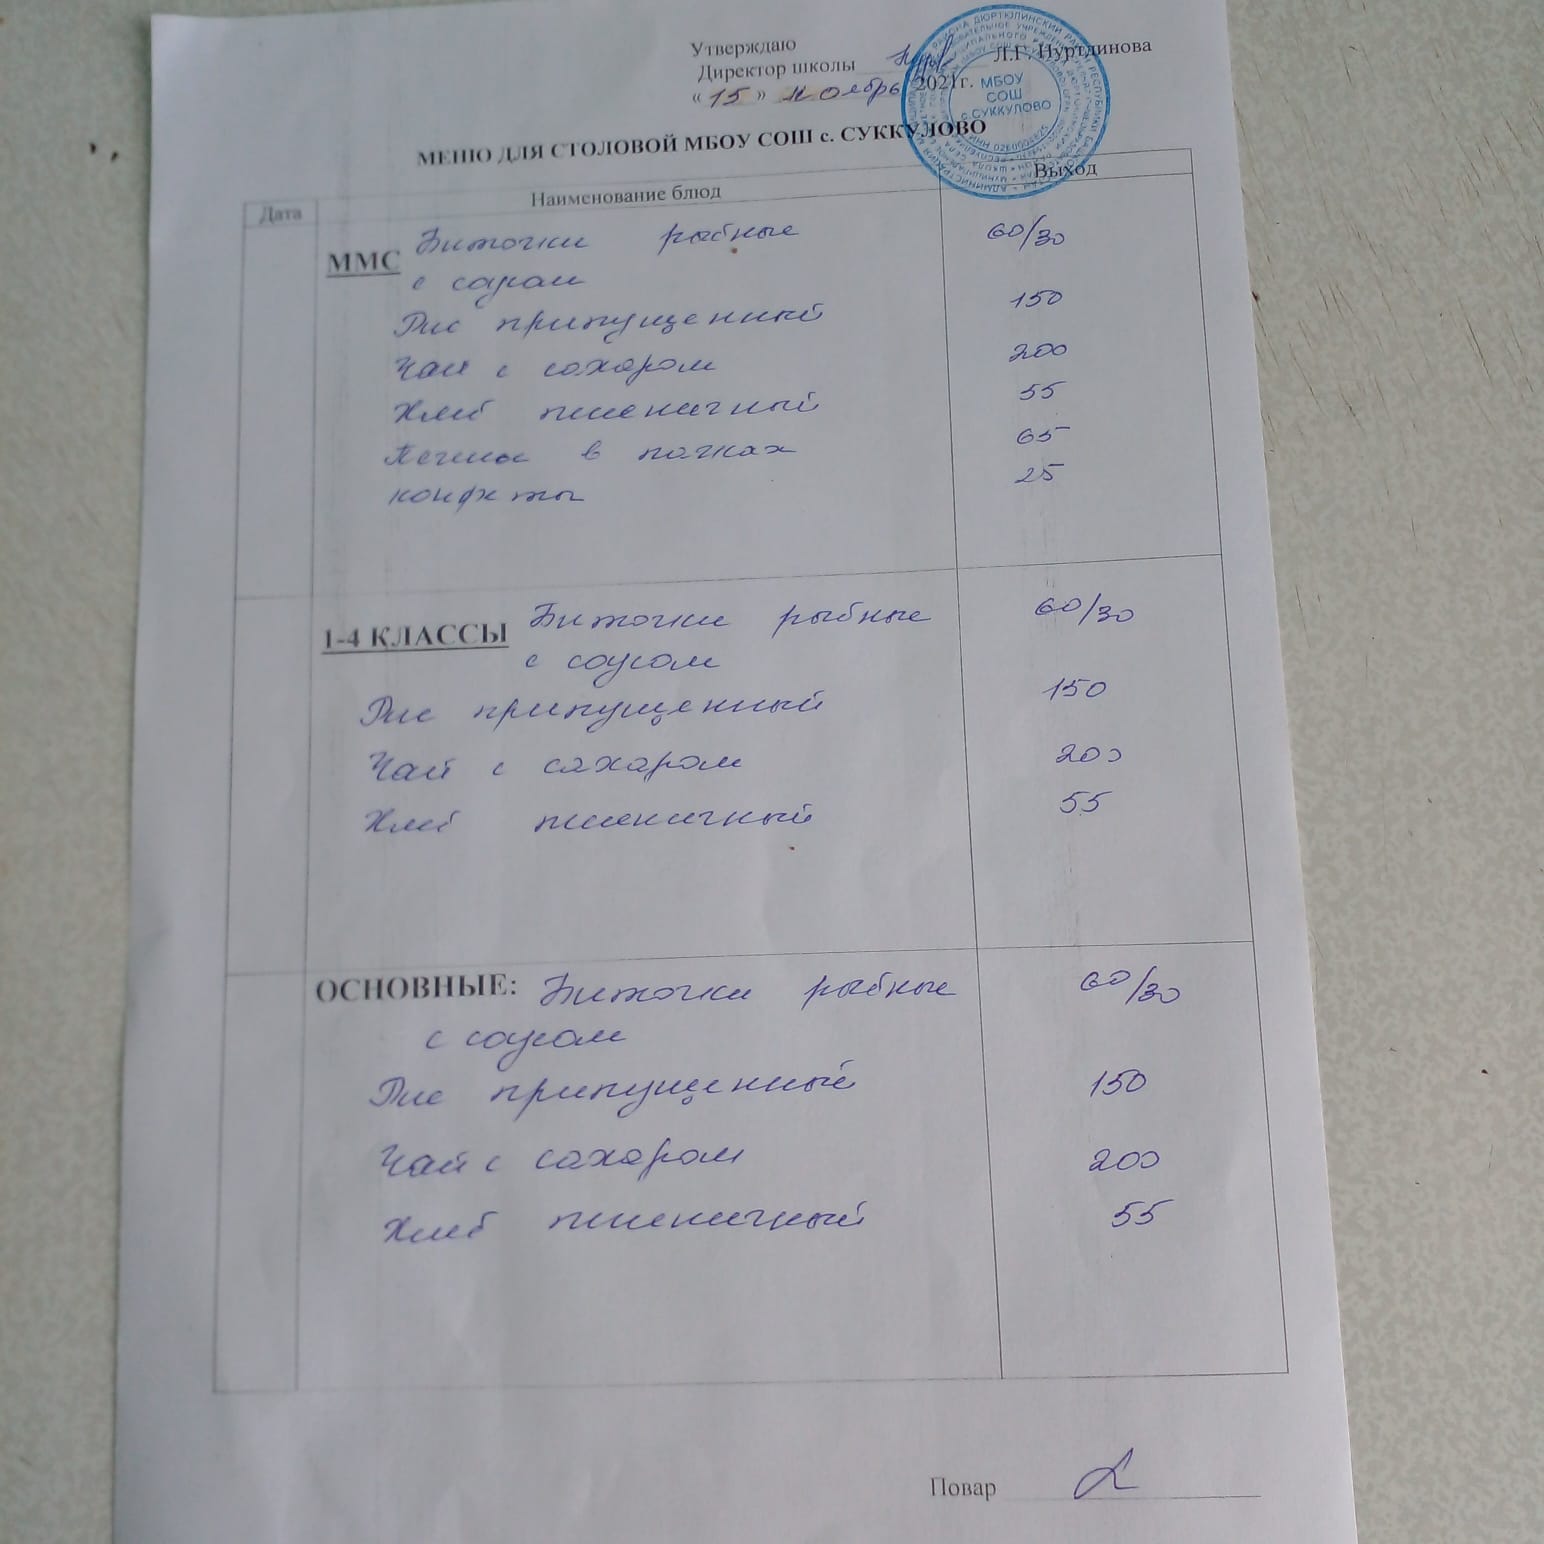 Утверждаю
Директор школы Л.Г. Нуртдинова
« 15 » ноябрь 2021г.
МБОУ
СОШ
с.СУККУЛОВО
МЕНЮ ДЛЯ СТОЛОВОЙ МБОУ СОШ с. СУККУЛОВО
Дата Наименование блюд Выход
ММС Биточки рыбные 60/30
с соусом
Рис припущенный 150
Чай с сахаром 200
Хлеб пшеничный 55
Печенье в пачках 65
конфеты 25
1-4 КЛАССЫ Биточки рыбные 60/30
с соусом
Рис припущенный 150
Чай с сахаром 200
Хлеб пшеничный 55
ОСНОВНЫЕ: Биточки рыбные 60/30
с соусом
Рис припущенный 150
Чай с сахаром 200
Хлеб пшеничный 55
Повар